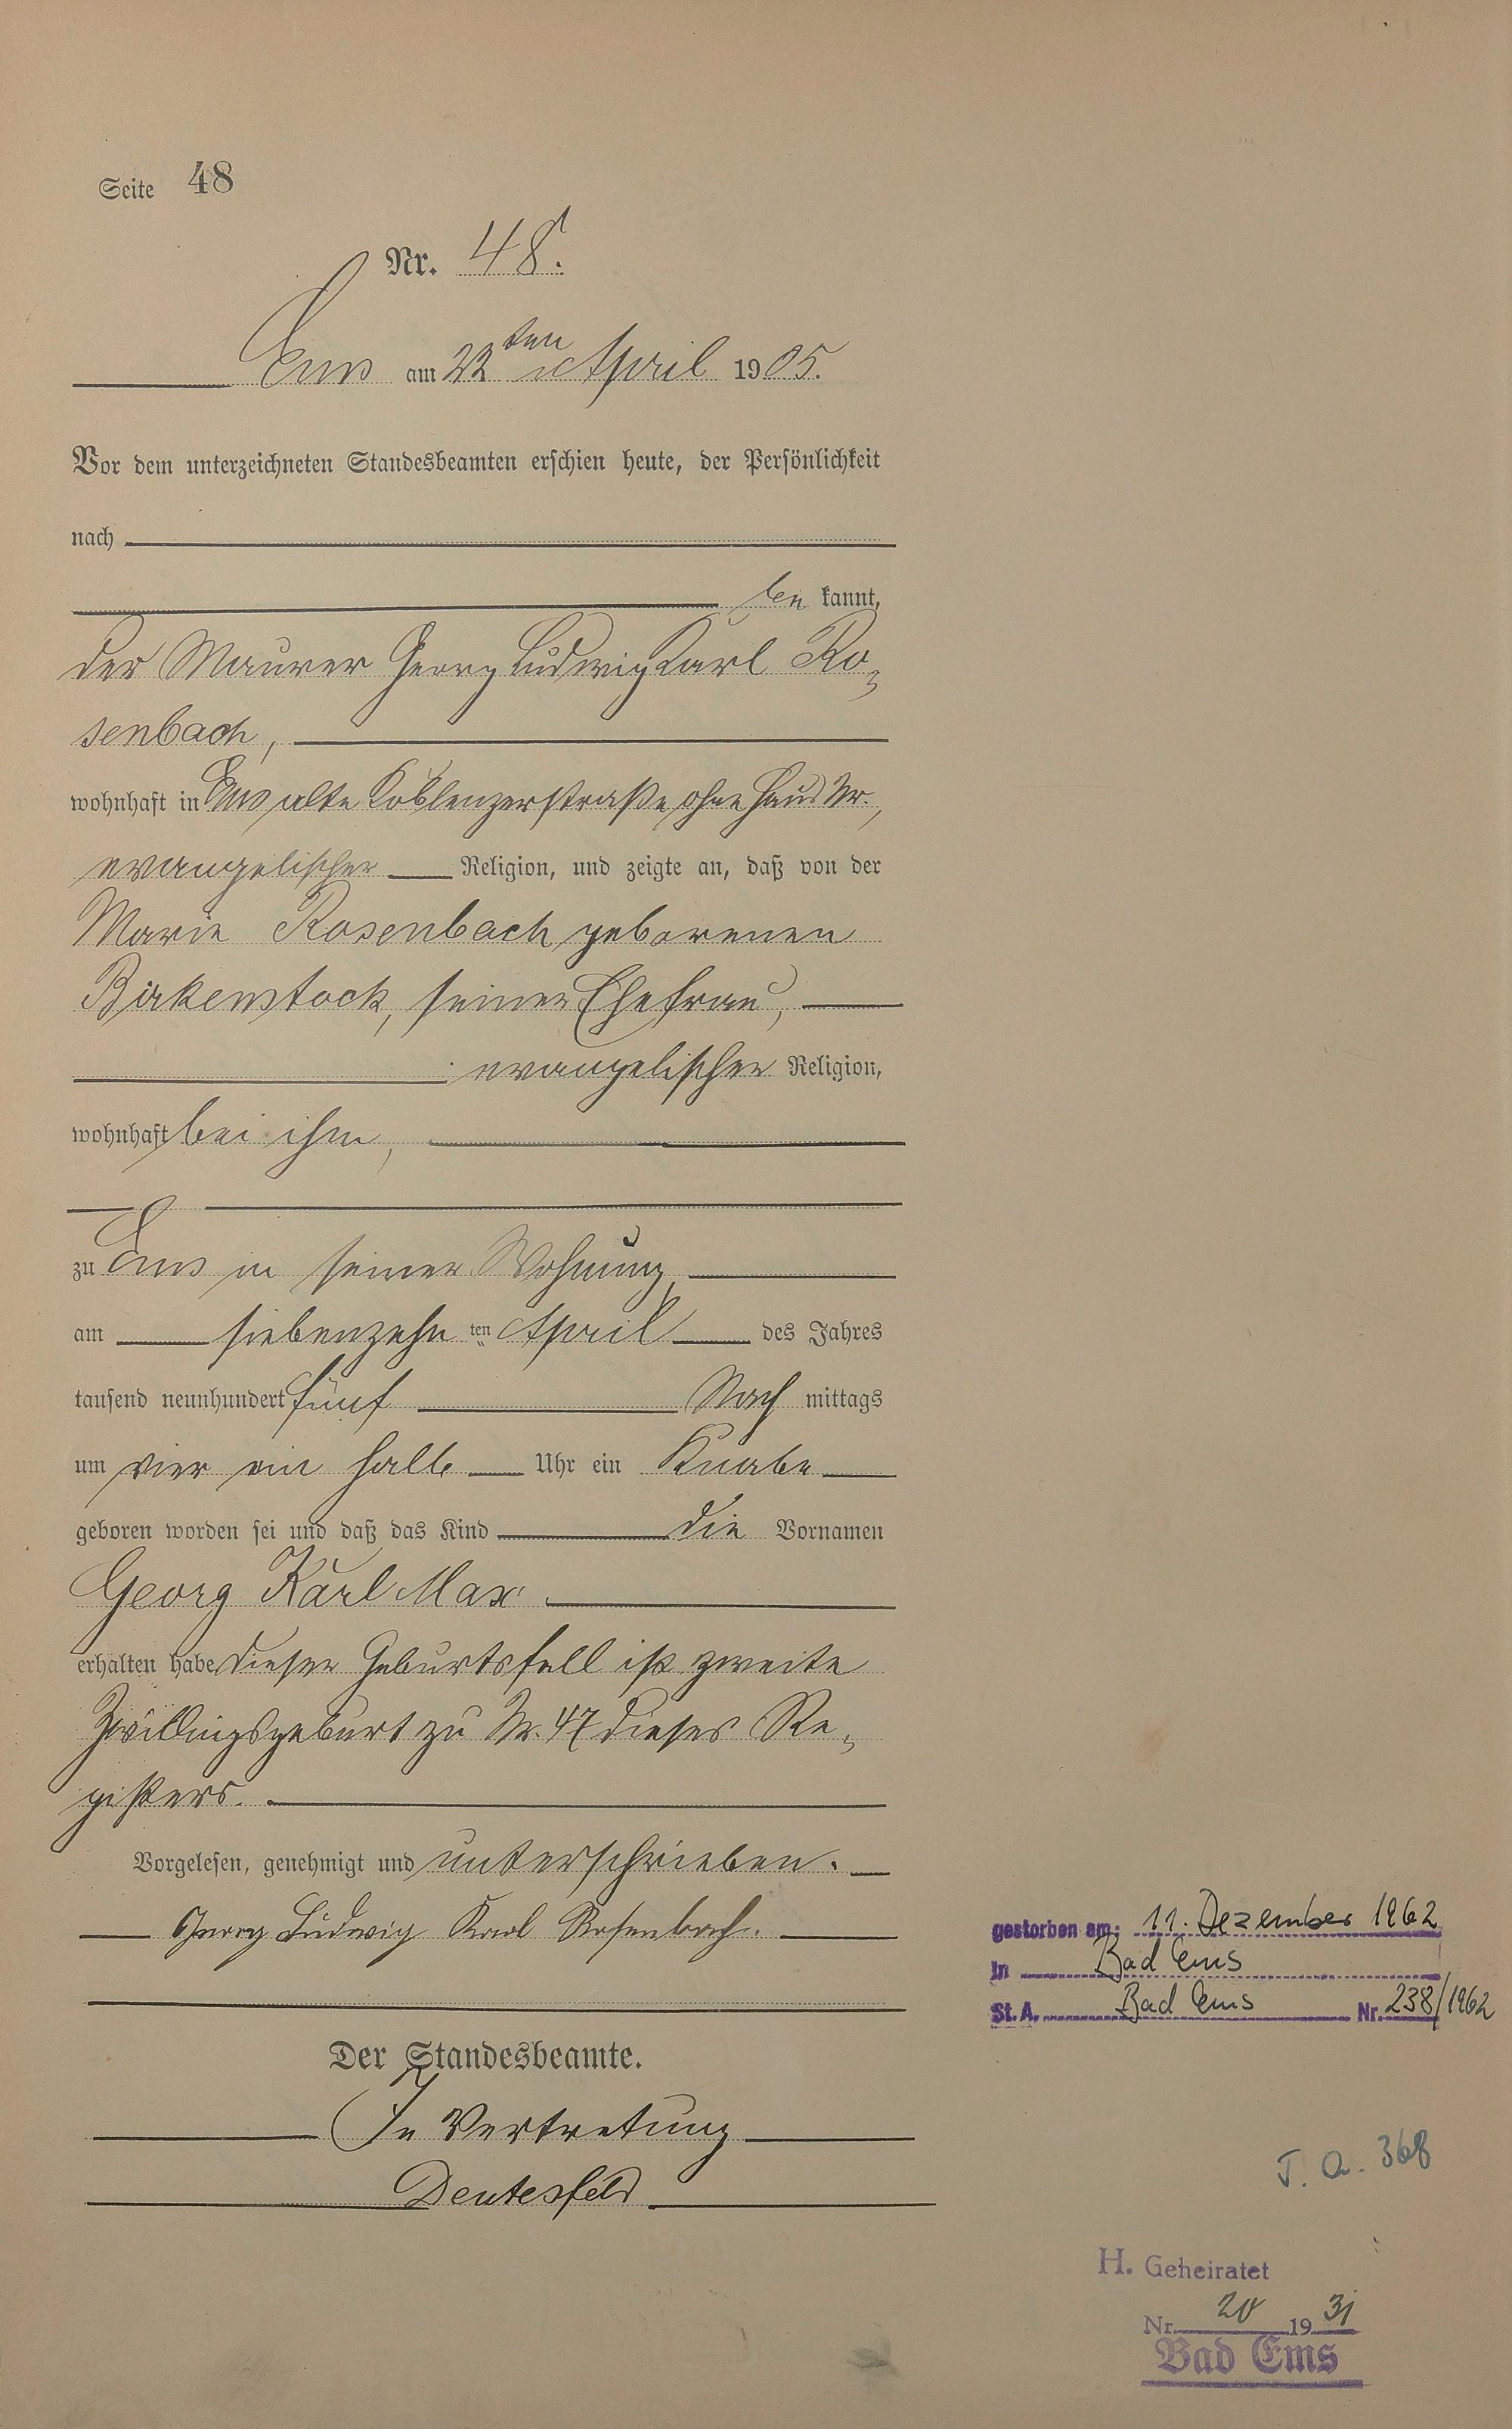 Seite 48
Nr. 48.
Ems am 22ten April 1905.
Vor dem unterzeichneten Standesbeamten erschien heute, der Persönlichkeit
nach
be kannt,
der Maurer Georg Ludwig Karl Ro-
senbach,
wohnhaft in Ems alte Koblenzerstraße ohne Haus Nr.,
evangelischer Religion, und zeigte an, daß von der
Marie Rosenbach geborenen
Birkenstock, seiner Ehefrau,
evangelischer Religion,
wohnhaft bei ihm,
zu Ems in seiner Wohnung,
am siebenzehn ten April des Jahres
tausend neunhundert fünf Nach mittags
um vier ein halb Uhr ein Knabe
geboren worden sei und daß das Kind die Vornamen
Georg Karl Max
erhalten habe dieser Geburtsfall ist zweite
Zwillingsgeburt zu Nr. 47 dieses Re-
gisters.
Vorgelesen, genehmigt und unterschrieben.
Georg Ludwig Karl Rosenbach.
Der Standesbeamte.
In Vertretung
Deutesfeld
gestorben am: 11. Dezember 1962
in Bad Ems
St. A. Bad Ems Nr. 238/1962
J. A. 368
H. Geheiratet
Nr. 20 1931
Bad Ems